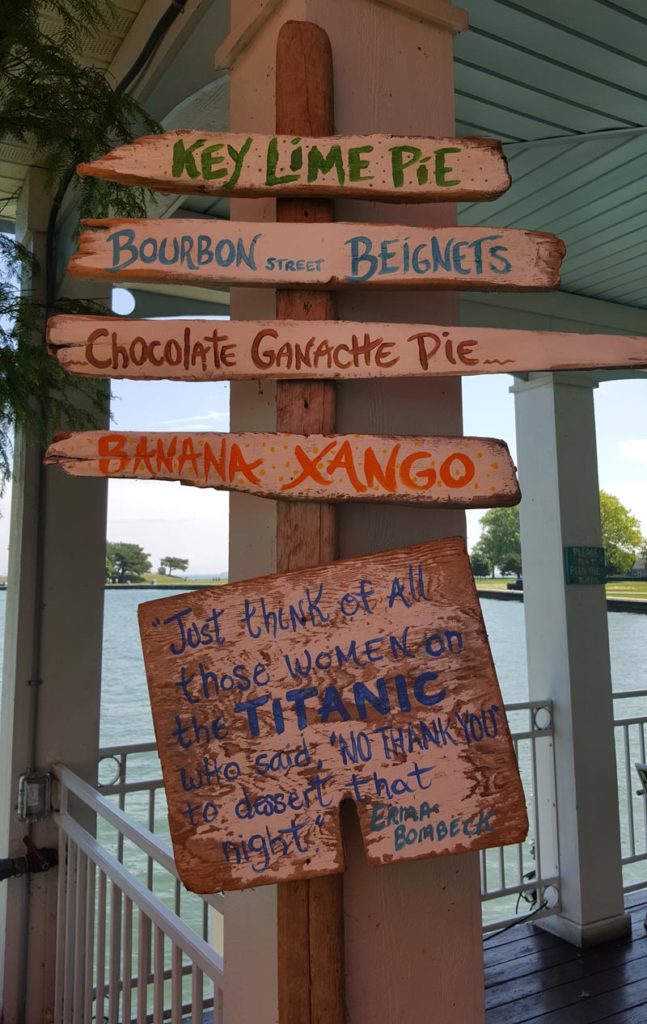 KEY LIME PIE
BOURBON STREET BEIGNETS
CHOCOLATE GANACHE PIE
BANANA XANGO
"Just think of All
those WOMEN on
the TITANIC
who said, "NO THANK YOU"
to dessert that
night."
ERMA
BOMBECK
PLEASE